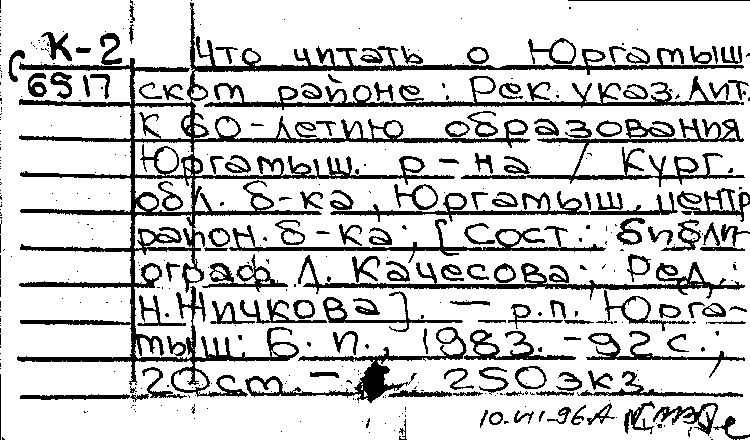 К-2 Что читать о Юргамыш-
6517 ском районе: Рек. указ. лит.
к 60-летию образования
Юргамыш. р-на / Кург.
обл. б-ка, Юргамыш. центр
район. б-ка; [Сост.: библи-
ограф Л. Качесова; Ред.:
Н. Жичкова]. — р.п. Юрга-
мыш: Б. и., 1983. - 92 с.;
20 см. — 250 экз.
10.VII-96.А